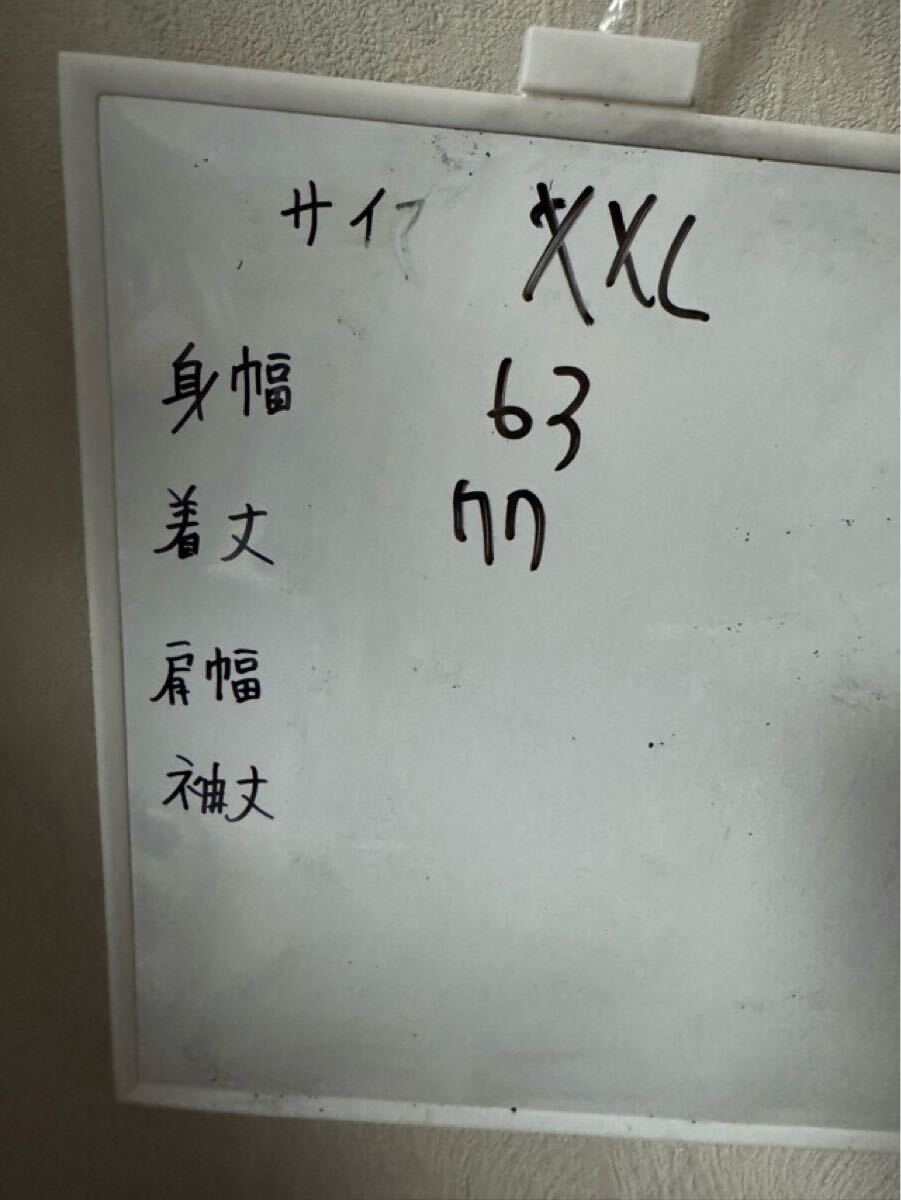 サイズ XXL
身幅 63
着丈 77
肩幅
袖丈